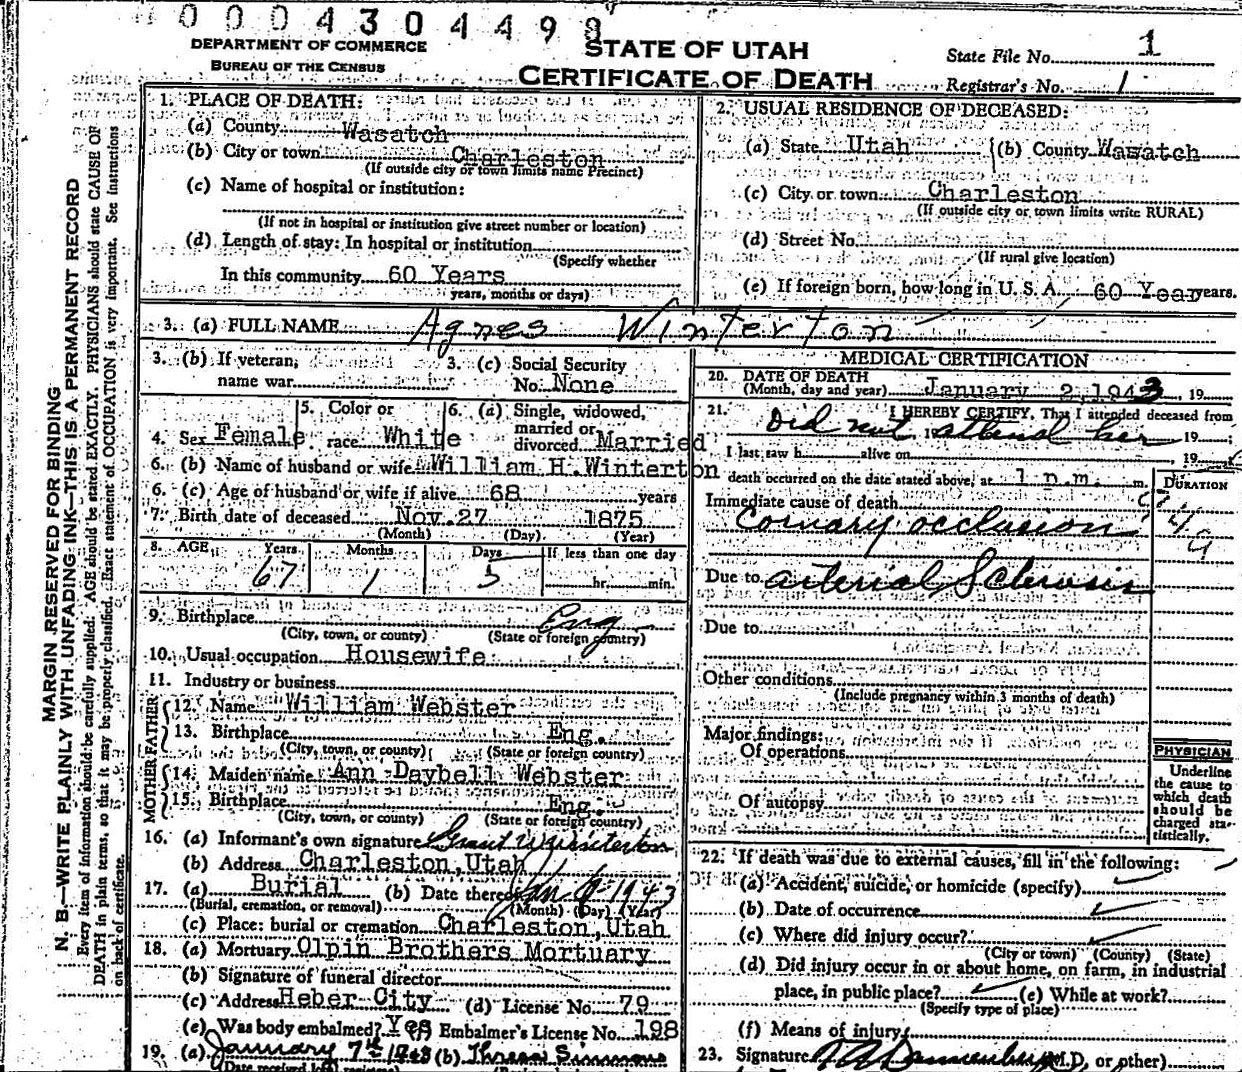 0004304498
DEPARTMENT OF COMMERCE
BUREAU OF THE CENSUS
STATE OF UTAH
CERTIFICATE OF DEATH
State File No. 1
Registrar's No. 1
MARGIN RESERVED FOR BINDING
N. B.—WRITE PLAINLY WITH UNFADING INK—THIS IS A PERMANENT RECORD
Every item of information should be carefully supplied. AGE should be stated EXACTLY. PHYSICIANS should state CAUSE OF
DEATH in plain terms, so that it may be properly classified. Exact statement of OCCUPATION is very important. See instructions
on back of certificate.
1. PLACE OF DEATH:
(a) County Wasatch
(b) City or town Charleston
(If outside city or town limits name Precinct)
(c) Name of hospital or institution:
(If not in hospital or institution give street number or location)
(d) Length of stay: In hospital or institution
(Specify whether
In this community 60 Years
years, months or days)
2. USUAL RESIDENCE OF DECEASED:
(a) State Utah (b) County Wasatch
(c) City or town Charleston
(If outside city or town limits write RURAL)
(d) Street No.
(If rural give location)
(e) If foreign born, how long in U. S. A. 60 Years years.
3. (a) FULL NAME Agnes Winterton
3. (b) If veteran, name war
3. (c) Social Security No. None
4. Sex Female
5. Color or race White
6. (a) Single, widowed, married or divorced Married
6. (b) Name of husband or wife William H. Winterton
6. (c) Age of husband or wife if alive 68 years
7. Birth date of deceased Nov. 27 1875
(Month) (Day) (Year)
8. AGE Years Months Days If less than one day
67 1 5 hr. min.
9. Birthplace Eng
(City, town, or county) (State or foreign country)
10. Usual occupation Housewife
11. Industry or business
FATHER
12. Name William Webster
13. Birthplace Eng.
(City, town, or county) (State or foreign country)
MOTHER
14. Maiden name Ann Daybell Webster
15. Birthplace Eng.
(City, town, or county) (State or foreign country)
16. (a) Informant's own signature Grant W. Winterton
(b) Address Charleston, Utah
17. (a) Burial (b) Date thereof Jan 6 1943
(Burial, cremation, or removal) (Month) (Day) (Year)
(c) Place: burial or cremation Charleston, Utah
18. (a) Mortuary Olpin Brothers Mortuary
(b) Signature of funeral director
(c) Address Heber City (d) License No. 79
(e) Was body embalmed? Yes Embalmer's License No. 198
19. (a) January 7th 1943 (b) Simmons
(Date received local registrar)
MEDICAL CERTIFICATION
20. DATE OF DEATH
(Month, day and year) January 2, 1943, 19
21. I HEREBY CERTIFY, That I attended deceased from
Did not attend her 19
I last saw h alive on , 19
death occurred on the date stated above, at 1 p.m. m.
DURATION
Immediate cause of death
Cornary occlusion
94
a
Due to arterial Sclerosis
Due to
Other conditions
(Include pregnancy within 3 months of death)
Major findings:
Of operations
Of autopsy
PHYSICIAN
Underline
the cause to
which death
should be
charged sta-
tistically.
22. If death was due to external causes, fill in the following:
(a) Accident, suicide, or homicide (specify)
(b) Date of occurrence
(c) Where did injury occur?
(City or town) (County) (State)
(d) Did injury occur in or about home, on farm, in industrial
place, in public place? (e) While at work?
(Specify type of place)
(f) Means of injury
23. Signature (M.D. or other)